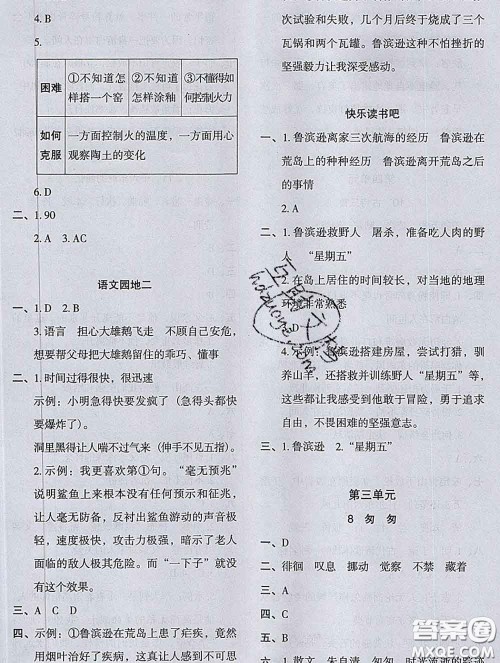 4. B
5.
困难 ①不知道怎样搭一个窑 ②不知道怎样涂釉 ③不懂得如何控制火力
如何克服 一方面控制火的温度，一方面用心观察陶土的变化
6. D
二、1. 90
2. A 3. AC
语文园地二
一、1. D 2. B
3. 语言 担心大雄鹅飞走 不顾自己安危
想要帮父母把大雄鹅留住的乖巧、懂事
二、1. 时间过得很快，很迅速
示例：小明急得快要发疯了（急得头都快
要爆炸了）。
洞里黑得让人喘不过气来（伸手不见五指）。
2. 示例：我更喜欢第①句。“毫无预兆”
说明鲨鱼上来时没有任何预示和征兆，
让人毫无防备，反衬出鲨鱼游动的声音极
轻，速度极快，攻击力极强，写出了老人
面临的敌人极其危险。而“一下子”就
没有这个效果。
三、A C D
四、示例：①鲁滨逊在荒岛上患了疟疾，竟然
用烟叶治好了疾病，
次试验和失败，几个月后终于烧成了三个
瓦锅和两个瓦罐。鲁滨逊这种不怕挫折的
坚强毅力让我深受感动。
快乐读书吧
一、1. 鲁滨逊离家三次航海的经历 鲁滨逊在
荒岛上的种种经历 鲁滨逊离开荒岛之后
的事情
2. A
二、1. 鲁滨逊救野人 屠杀，准备吃人肉的野
人 “星期五”
2. 在岛上居住的时间较长，对当地的地理
环境非常熟悉
4. 示例：鲁滨逊搭建房屋，尝试打猎，驯
养山羊，还搭救并训练野人“星期五”等，
这些都能感受到他敢于冒险，勇于追求
自由，不畏困难的坚强意志。
三、1. 鲁滨逊 2. “星期五”
第三单元
8 匆 匆
一、D
二、徘徊 叹息 挪动 觉察 不禁 藏着
三、A
四、C
五、B
一、散文 朱自清 匆匆 时光流逝的踪迹
答案圈
MXQE.COM